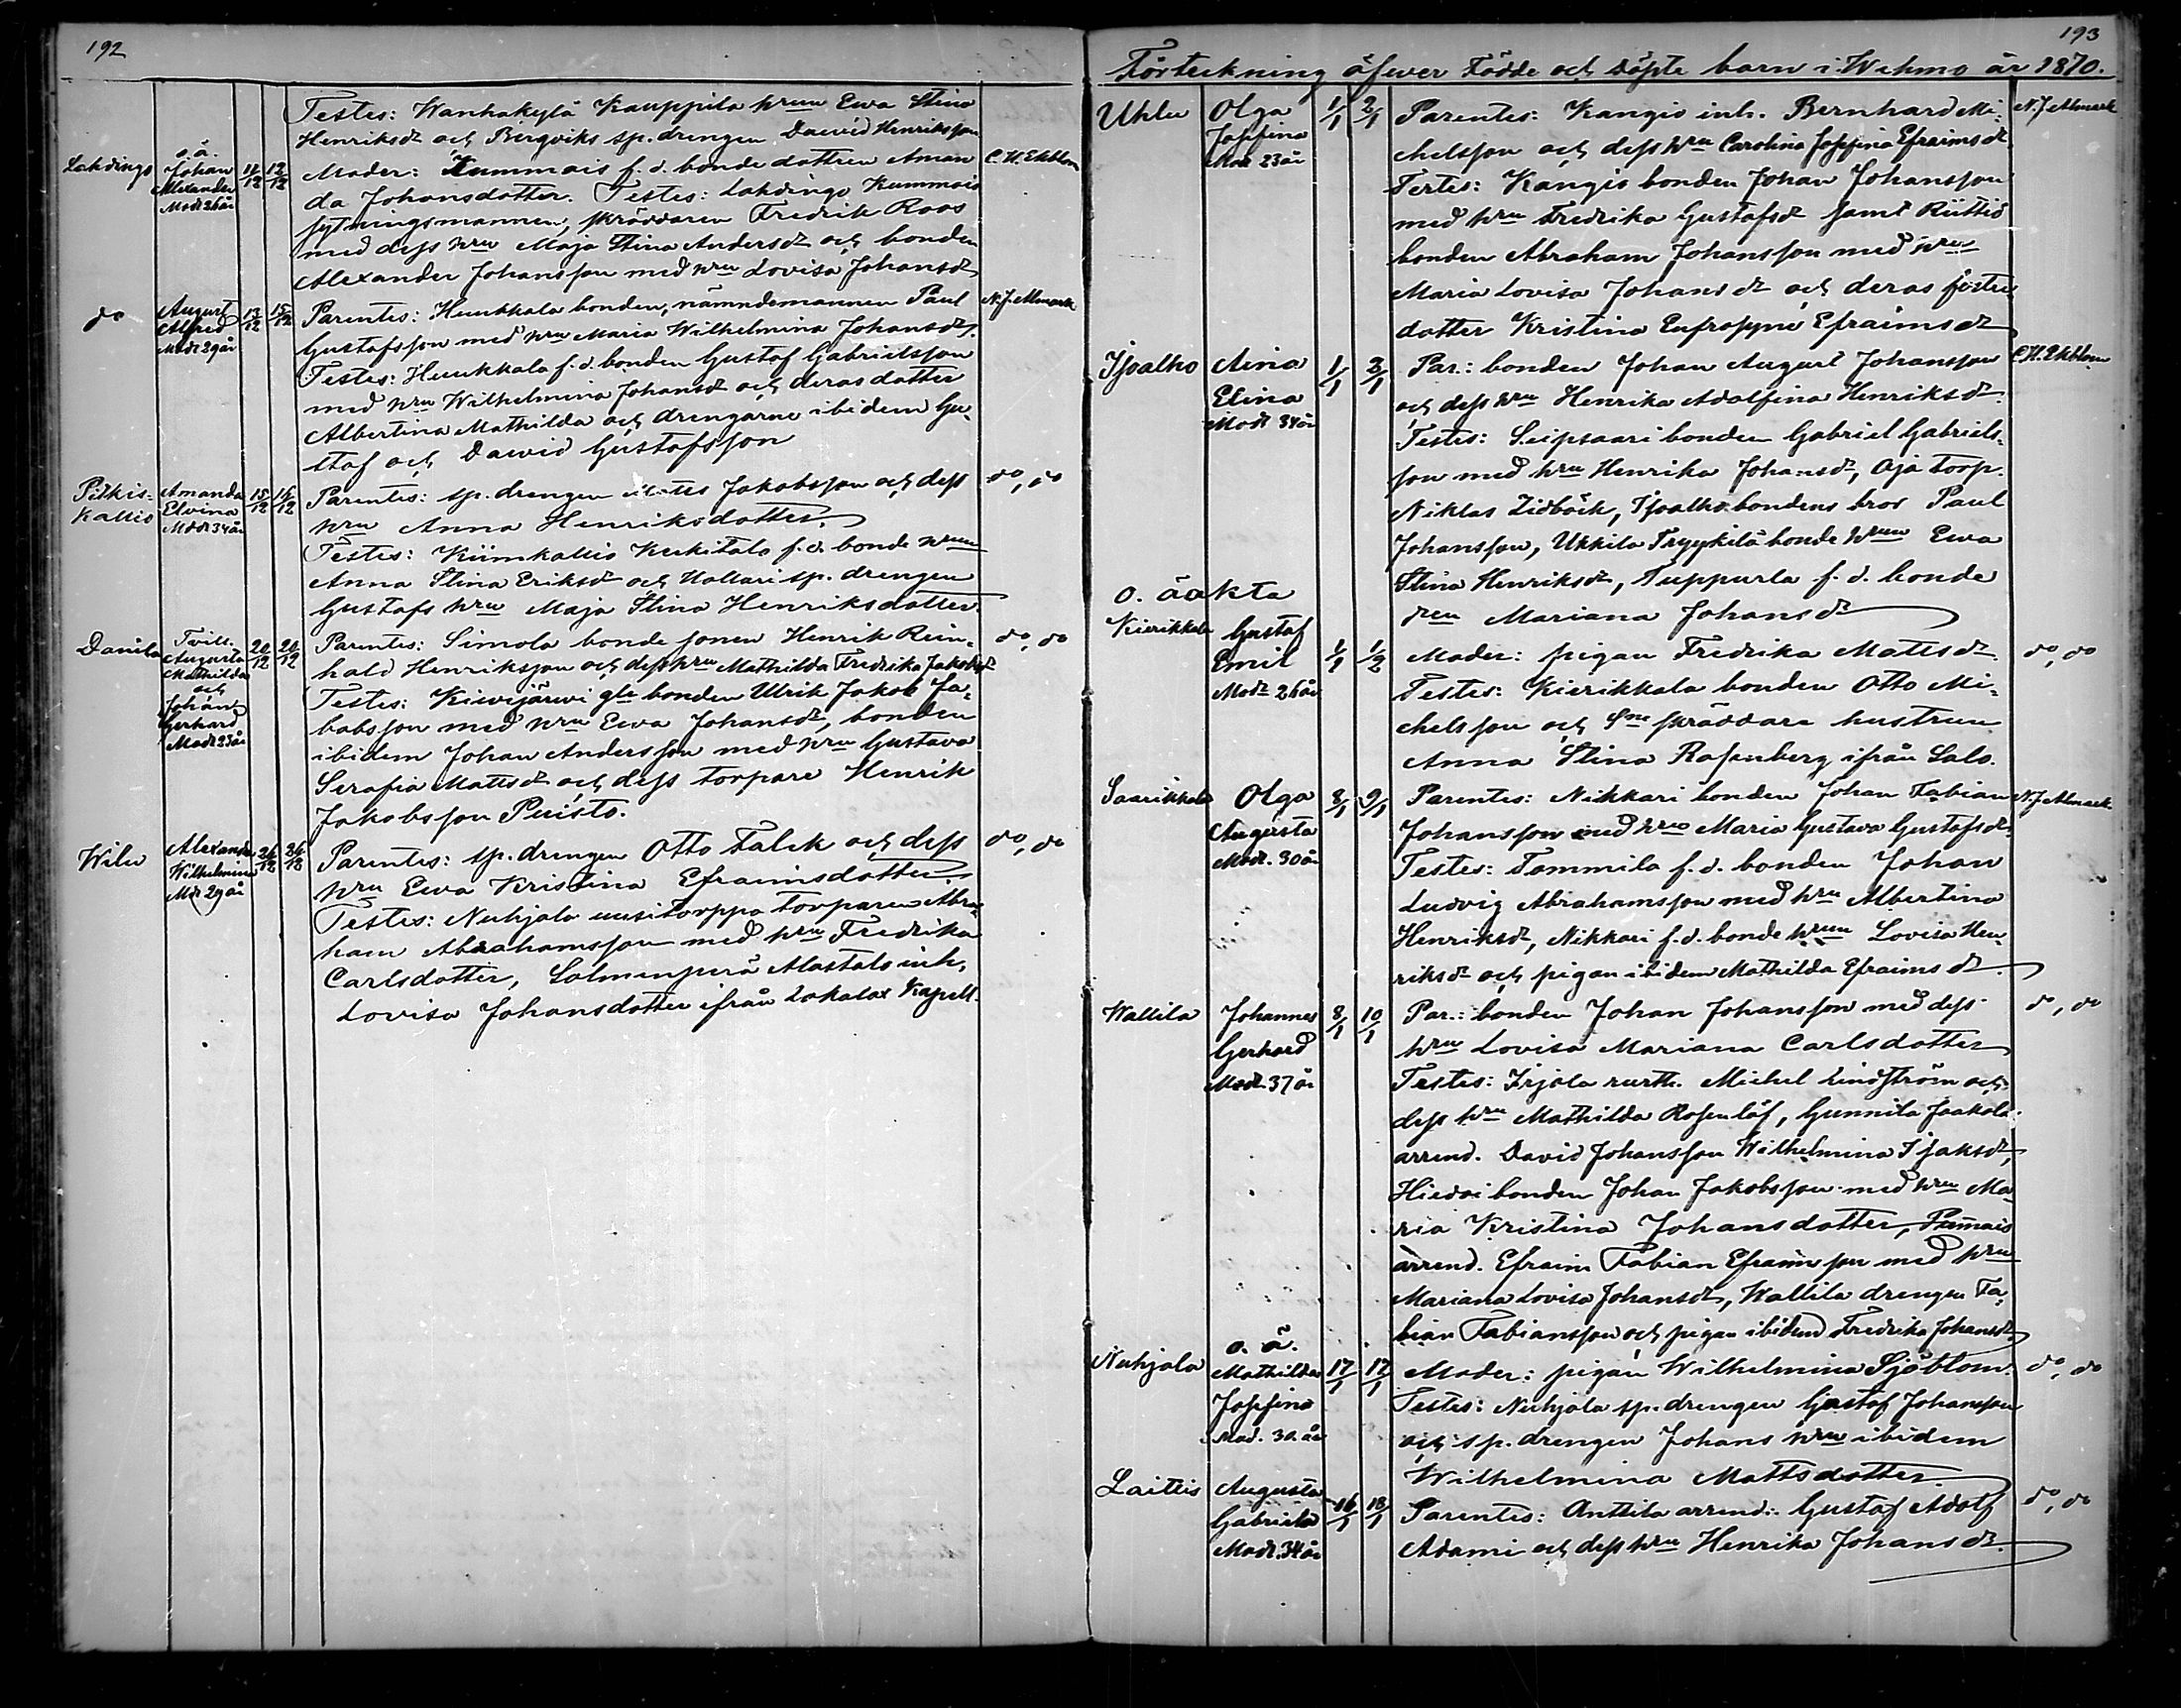 192
Testes: Wanhakylä Kauppila hrun Ewa Stina
Henriksdr och Bergviks sp. drengen Dawid Henriksson
Lahdingo o. ä. Johan Alexander Modr 26 år 11/12 12/12 Moder: Kummais f. d. bonde dottren Aman C. H. Ekblom
da Johansdotter. Testes: Lahdingo Kummais
sytningsmannen, skräddaren Fredrik Roos
med dess hru Maja Stina Andersdr och bonden
Alexander Johansson med hru Lovisa Johansdr
do August Alfred Modr 29 år 13/12 15/12 Parentes: Huukkala bonden, nämndemannen Paul N. J. Almark
Gustafsson med hru Maria Wilhelmina Johansdr.
Testes: Huukkala f. d. bonden Gustaf Gabrielsson
med hru Wilhelmina Johansdr och deras dotter
Albertina Mathilda och drengarne ibidem Gu-
staf och Dawid Gustafsson
Pitkis-kallio Amanda Elvina Modr 34 år 15/12 16/12 Parentes: sp. drengen Matts Jakobsson och dess do, do
hru Anna Henriksdotter.
Testes: Kiimkallio Keikitalo f. d. bonde hrun
Anna Stina Eriksdr och Hallari sp. drengen
Gustafs hru Maja Stina Henriksdotter
Danila Tvill. Augusta Mathilda och Johan Gerhard Modr 23 år 20/12 20/12 Parentes: Simola bonde sonen Henrik Rein- do, do
hald Henriksson och dess hru Mathilda Fredrika Jakobsdr
Testes: Kiwijärwi gle bonden Ulrik Jakob Ja-
kobsson med hru Ewa Johansdr, bonden
ibidem Johan Andersson med hru Gustava
Serafia Mattsdr och dess torpare Henrik
Jakobsson Puisto.
Wilu Alexandra Wilhelmina Mdr 29 år 26/12 26/12 Parentes: sp. drengen Otto Falck och dess do, do
hru Ewa Kristina Efraimsdotter.
Testes: Nuhjala uusitorppa torparen Abra-
ham Abrahamsson med hru Fredrika
Carlsdotter, Salmenperä Alastalo inh.
Lovisa Johansdotter ifrån Lokalax Kapell.
193
Förteckning öfwer Födde och döpte barn i Wehmo år 1870.
Uhlu Olga Josefina Mod 23 år 1/1 2/1 Parentes: Kangis inh. Bernhard Mi- N. J. Almark
chelsson och dess hru Carolina Josefina Efraimsdr
Testes: Kangis bonden Johan Johansson
med hru Fredrika Gustafsdr samt Riittiö
bonden Abraham Johansson med hru
Maria Lovisa Johansdr och deras foster
dotter Kristina Eufrosyne Efraimsdr
Isoalho Aina Elina Modr 34 år 1/1 2/1 Par.: bonden Johan August Johansson C. H. Ekblom
och dess hru Henrika Adolfina Henriksdr.
Testes: Seipsaari bonden Gabriel Gabriels-
son med hru Henrika Johansdr, Oja torp.
Niklas Lidbäck, Isoalho bondens bror Paul
Johansson, Ukkila Tryykilä bonde hrun Ewa
Stina Henriksdr, Tuppurla f. d. bonde
hrun Mariana Johansdr
o. äakta
Kierikkala Gustaf Emil Modr 26 år 1/1 1/2 Moder: pigan Fredrika Mattsdr. do, do
Testes: Kierikkala bonden Otto Mi-
chelsson och sne skräddare hustrun
Anna Stina Rosenberg ifrån Salo.
Saarikkala Olga Augusta Modr. 30 år 8/1 9/1 Parentes: Nikkari bonden Johan Fabian N. J. Almark
Johansson med hru Maria Gustava Gustafsdr
Testes: Tommila f. d. bonden Johan
Ludvig Abrahamsson med hru Albertina
Henriksdr, Nikkari f. d. bonde hrun Lovisa Hen-
riksdr och pigan ibidem Mathilda Efraimsdr.
Wallila Johannes Gerhard Modr 37 år 8/1 10/1 Par.: bonden Johan Johansson med dess do, do
hru Lovisa Mariana Carlsdotter
Testes: Irjala rusth. Michel Lindström och
dess hru Mathilda Rosenlöf, Gunnila Jaakola
arrend. David Johansson Wilhelmina Isaksdr,
Hiedoi bonden Johan Jakobsson med hru Ma-
ria Kristina Johansdotter, Pumais
arrend. Efraim Fabian Efraimsson med hru
Mariana Lovisa Johansdr, Wallila drengen Fa-
bian Fabiansson och pigan ibidem Fredrika Johansdr
Nuhjala o. ä. Mathilda Josefina Mod. 30 år 17/1 17/1 Moder: pigan Wilhelmina Sjöblom. do, do
Testes: Nuhjala sp. drengen Gustaf Johansson
och sp. drengen Johans hru ibidem
Wilhelmina Mattsdotter
Laittis Augusta Gabriela Modr. 34 år 16/1 18/1 Parentes: Anttila arrend. Gustaf Adolf do, do
Adami och dess hru Henrika Johansdr.